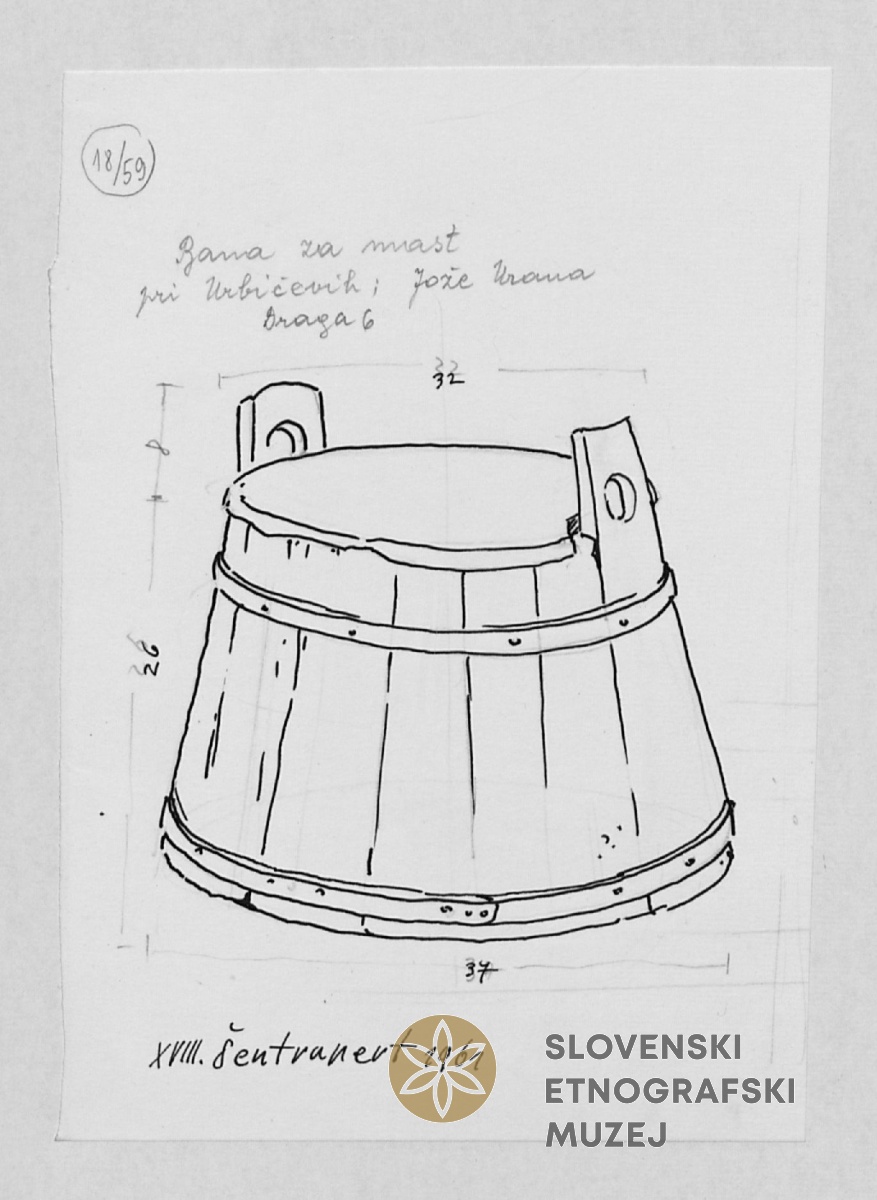 18/59
Bana za mast
pri Urbičevih; Jože Vrana
Draga 6
32
8
26
37
XVIII. Šentrupert 1961
SLOVENSKI
ETNOGRAFSKI
MUZEJ